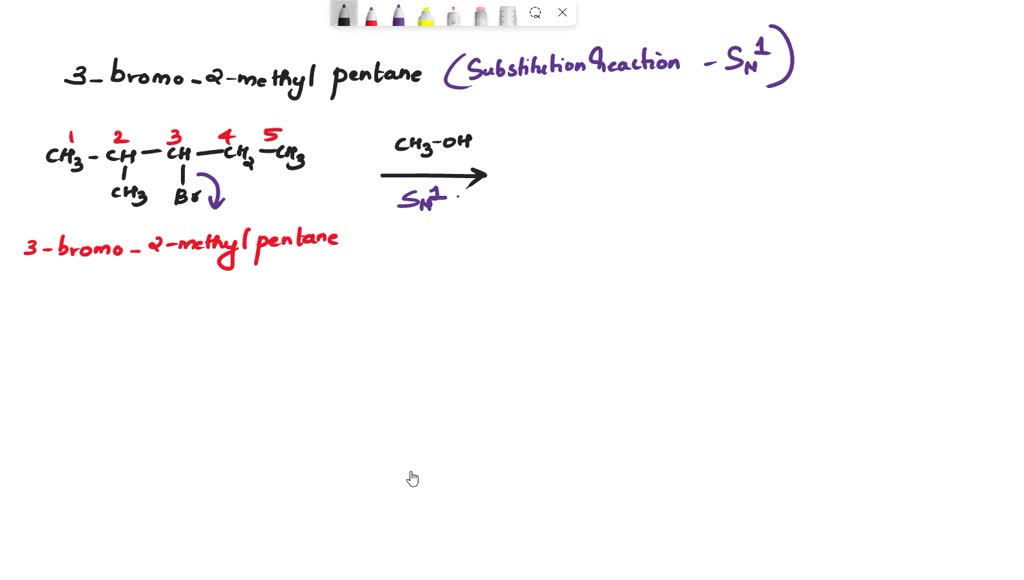 3-bromo-2-methyl pentane (Substitution Reaction - SN1)
1 2 3 4 5
CH3-CH-CH-CH2-CH3
CH3 Br
CH3-OH
SN1
3-bromo-2-methyl pentane